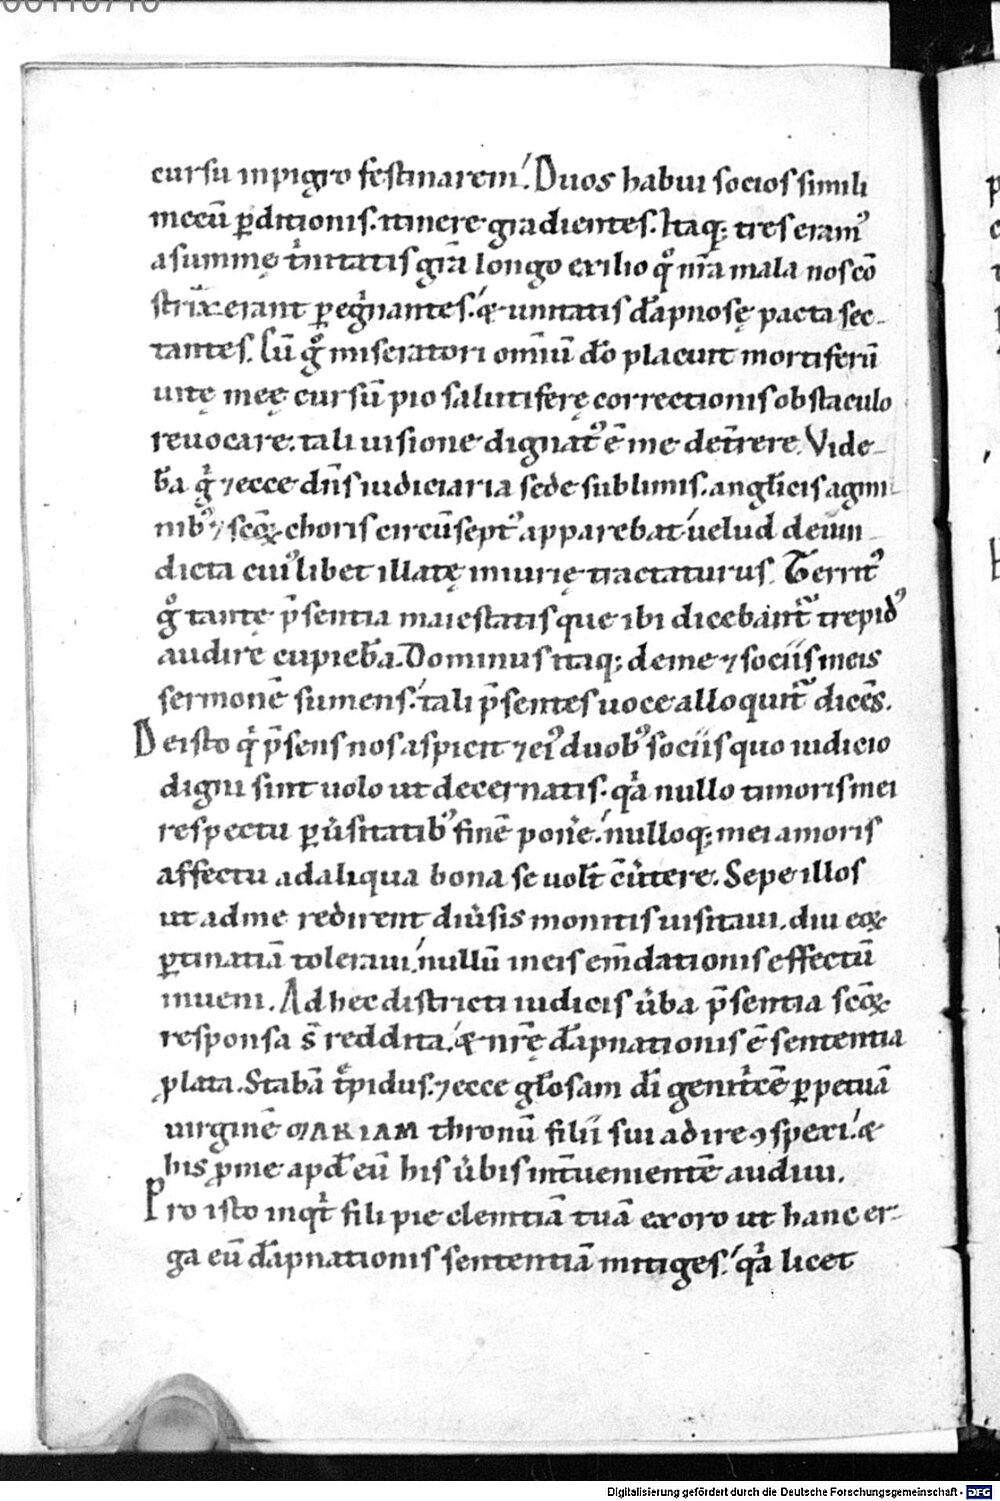 cursu inpigro festinarem. Duos habui socios simili
mecū ꝑditionis. itinere gradientes. Itaq; tres eramꝰ
a summę tͥnitatis grā longo exilio qͦ nr̄a mala nos cō
strinxerant ꝑegͥnantes. & unitatis dāpnosę pacta sec-
tantes. Cū gͦ miseratori omīū dō placuit mortiferū
uitę meę cursū pio salutiferę correctionis obstaculo
reuocare. tali uisione dignatꝰ ē me det̄rere. Vide-
bā gͥ ⁊ ecce dn̄s iudiciaria sede sublimis. anglicis agmi-
nibꝰ ⁊ scōꝝ choris circūseptꝰ apparebat uelud de uin-
dicta cuiꝰlibet illatę iniurię tractaturus. Territꝰ
gͦ tantę p̄sentia maiestatis que ibi dicebant᷑ trepidꝰ
audire cupiebā. Dominus itaq; de me ⁊ sociis meis
sermonē sumens. tali p̄sentes uoce alloquit᷑ dicēs.
De isto qͥ p̄sens nos aspicit ⁊ eiꝰ duobꝰ sociis quo iudicio
digni sint uolo ut decernatis. qͣ nullo timoris mei
respectu ꝑuͥsitatibꝰ finē ponē. nulloq; mei amoris
affectu ad aliqua bona se uolt̄ cūͥtere. Sepe illos
ut ad me redirent diuͥsis monitis uisitaui. diu eoꝝ
ꝑtinatiā toleraui. nullū in eis em̄dationis effectū
inueni. Ad hec districti iudicis uͥba p̄sentia scōꝝ
responsa s̄ reddita. & nr̄ę dāpnationis ē sententia
ꝓlata. Stabā tͤpidus. ⁊ ecce glosam dī genitͥcē ꝑpetuā
uirginē MARIAM thronū filii sui adire ꝯspexi. &
his ꝓ me apd̄ eū his uͥbis int̄uenientē audiui.
Pro isto inqͥt fili pie clem̄tiā tuā exoro ut hanc er-
ga eū dāpnationis sententiā mitiges. qͣ licet
Digitalisierung gefördert durch die Deutsche Forschungsgemeinschaft - DFG